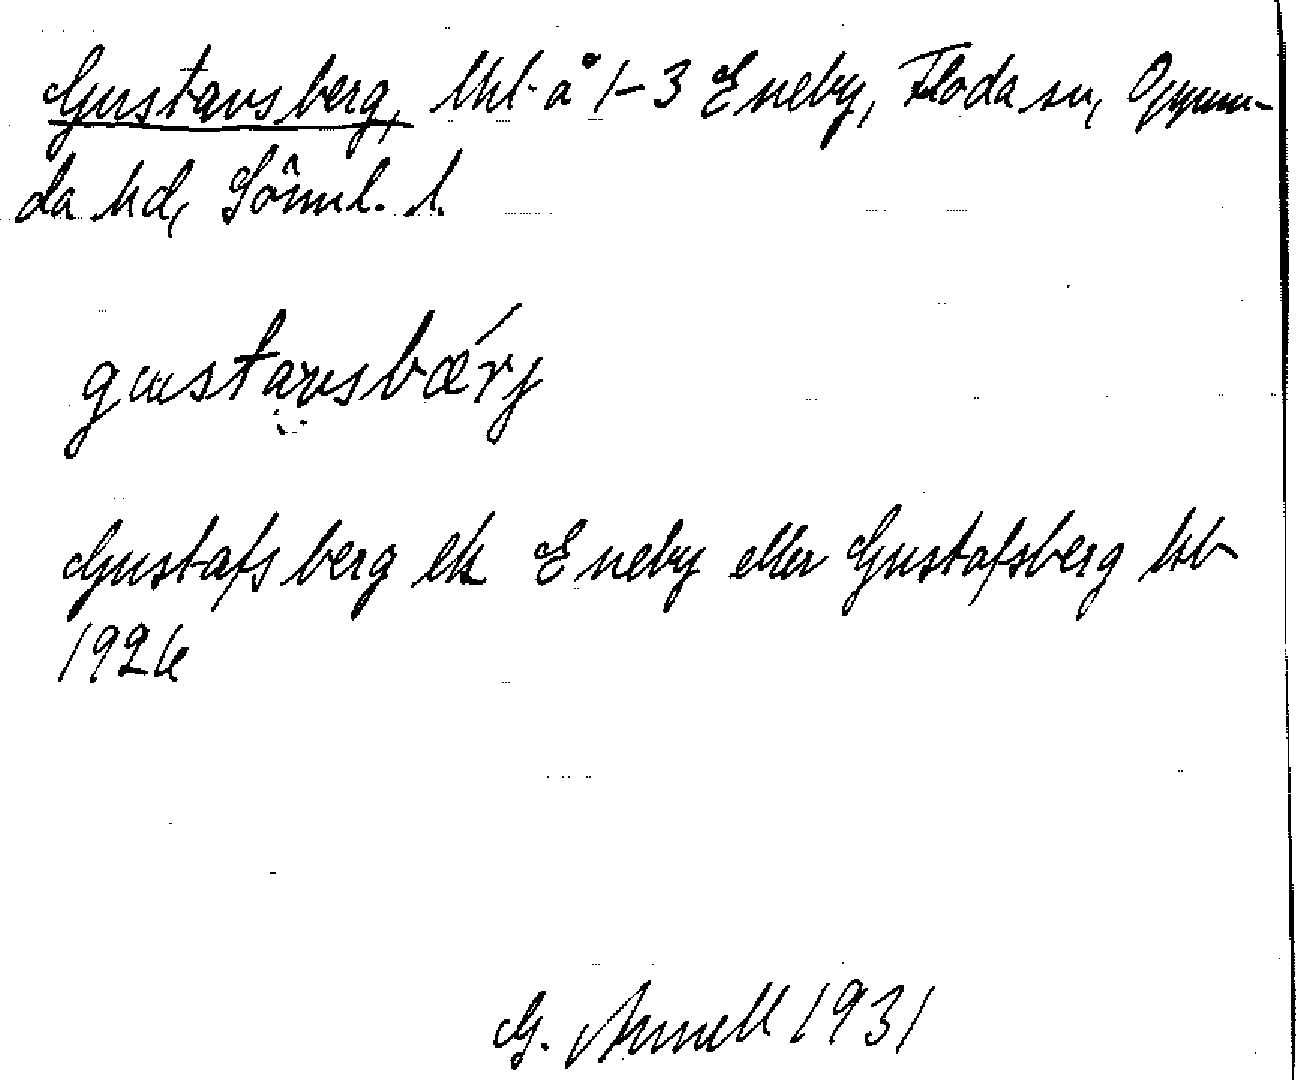 Gustavsberg, lht å 1-3 Eneby, Floda sn, Oppun-
da hd, Söml. l.
gustavsbærj
Gustafsberg ek Eneby eller Gustafsberg hb
1926
G. Arnell 1931